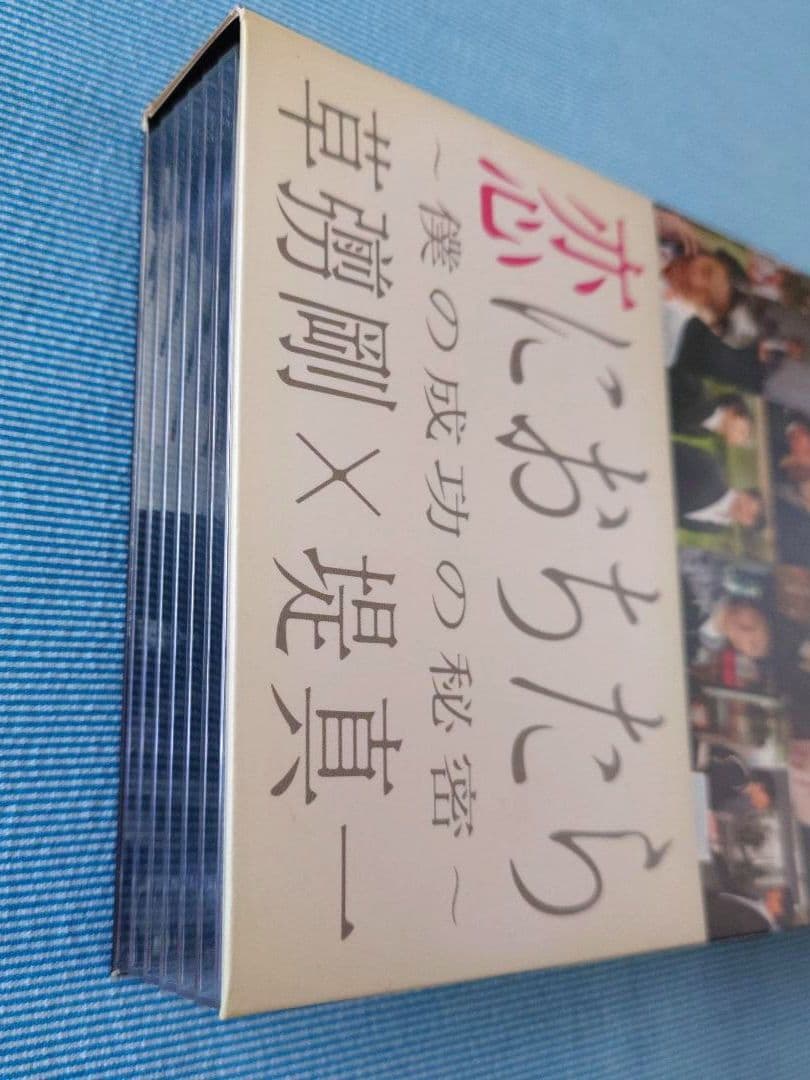 恋におちたら
～僕の成功の秘密～
草彅剛×堤真一